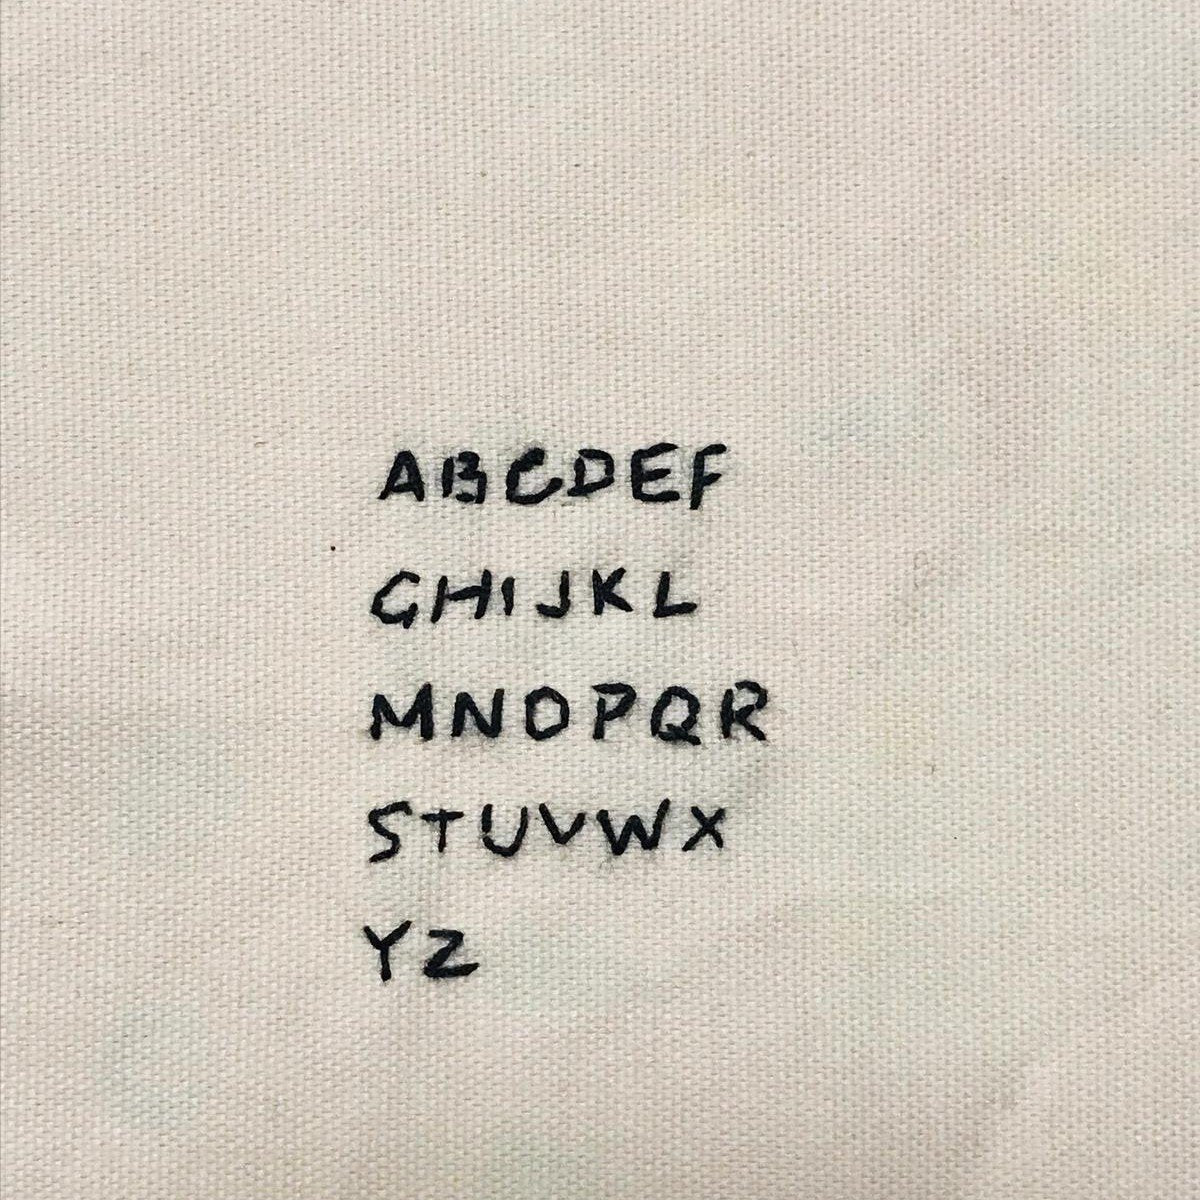 ABCDEF
GHIJKL
MNOPQR
STUVWX
YZ